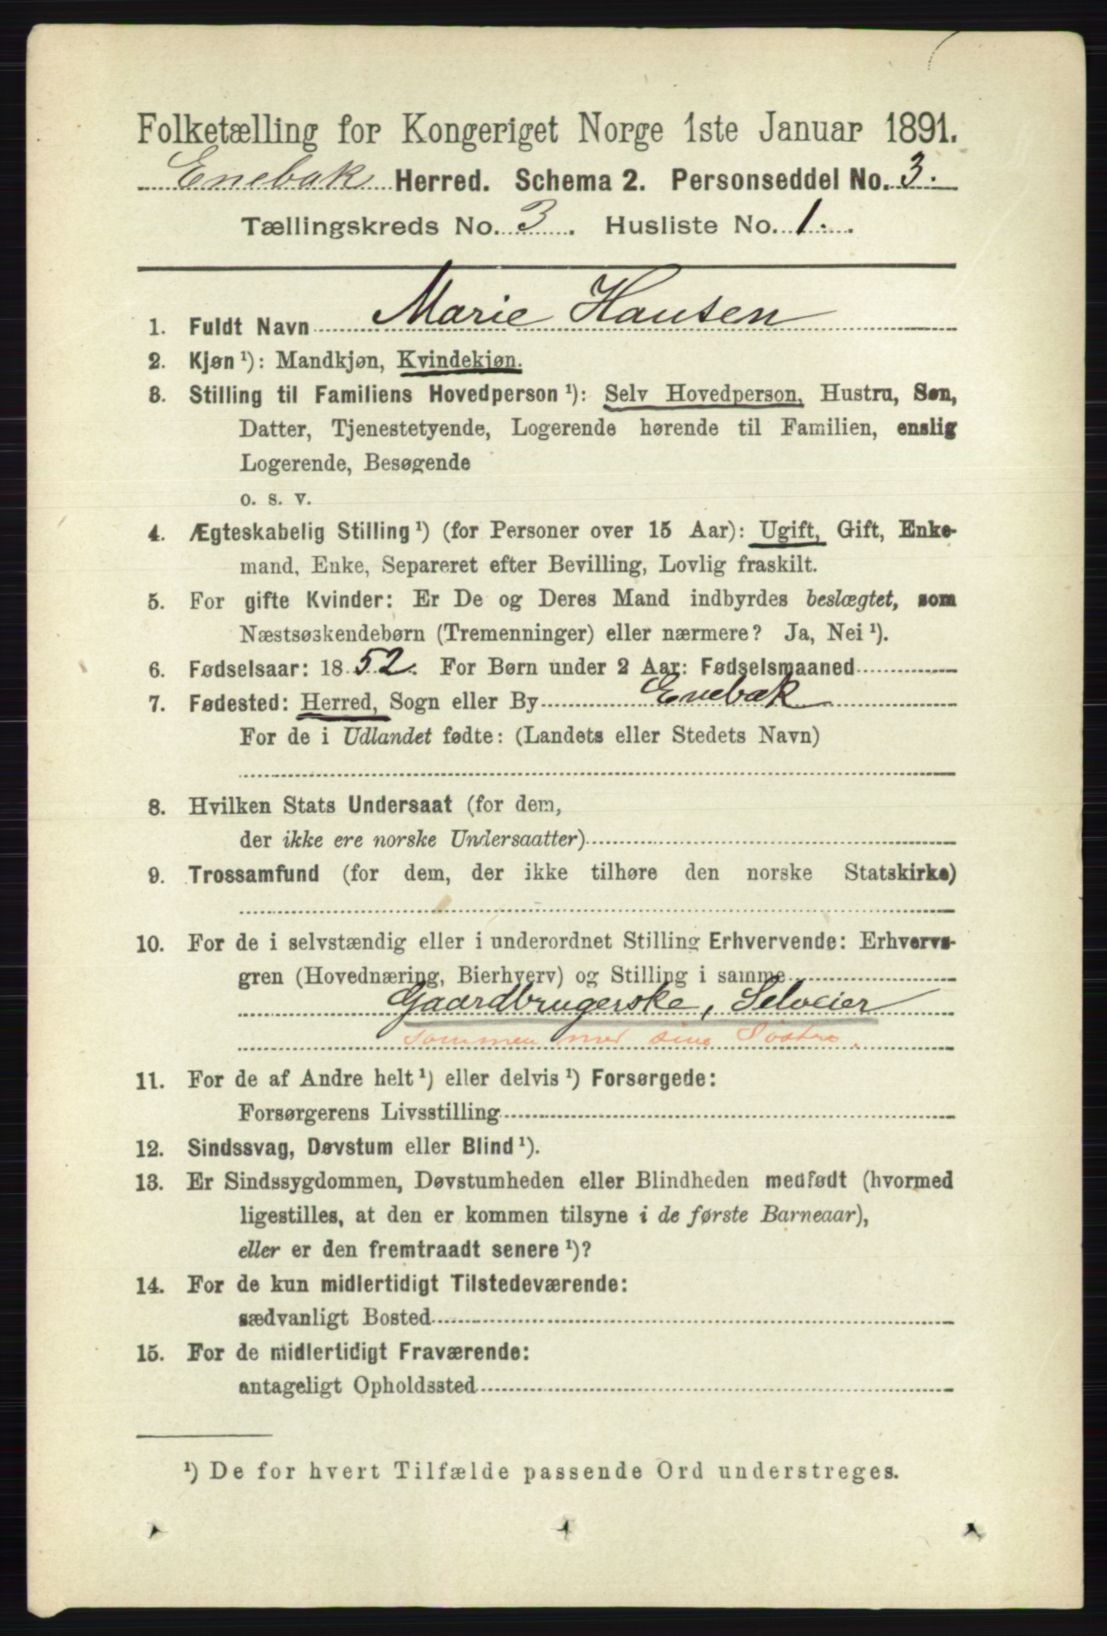 Folketælling for Kongeriget Norge 1ste Januar 1891.
Enebak Herred. Schema 2. Personseddel No. 3.
Tællingskreds No. 3. Husliste No. 1.
1. Fuldt Navn Marie Hansen
2. Kjøn ¹): Mandkjøn, Kvindekjøn.
3. Stilling til Familiens Hovedperson ¹): Selv Hovedperson, Hustru, Søn,
Datter, Tjenestetyende, Logerende hørende til Familien, enslig
Logerende, Besøgende
o. s. v.
4. Ægteskabelig Stilling ¹) (for Personer over 15 Aar): Ugift, Gift, Enke-
mand, Enke, Separeret efter Bevilling, Lovlig fraskilt.
5. For gifte Kvinder: Er De og Deres Mand indbyrdes beslægtet, som
Næstsøskendebørn (Tremenninger) eller nærmere? Ja, Nei ¹).
6. Fødselsaar: 1852. For Børn under 2 Aar: Fødselsmaaned
7. Fødested: Herred, Sogn eller By Enebak
For de i Udlandet fødte: (Landets eller Stedets Navn)
8. Hvilken Stats Undersaat (for dem,
der ikke ere norske Undersaatter)
9. Trossamfund (for dem, der ikke tilhøre den norske Statskirke)
10. For de i selvstændig eller i underordnet Stilling Erhvervende: Erhvervs-
gren (Hovednæring, Bierhverv) og Stilling i samme
Gaardbrugerske, Selveier
sammen med sine Søstre.
11. For de af Andre helt ¹) eller delvis ¹) Forsørgede:
Forsørgerens Livsstilling
12. Sindssvag, Døvstum eller Blind ¹).
13. Er Sindssygdommen, Døvstumheden eller Blindheden medfødt (hvormed
ligestilles, at den er kommen tilsyne i de første Barneaar),
eller er den fremtraadt senere ¹)?
14. For de kun midlertidigt Tilstedeværende:
sædvanligt Bosted
15. For de midlertidigt Fraværende:
antageligt Opholdssted
¹) De for hvert Tilfælde passende Ord understreges.